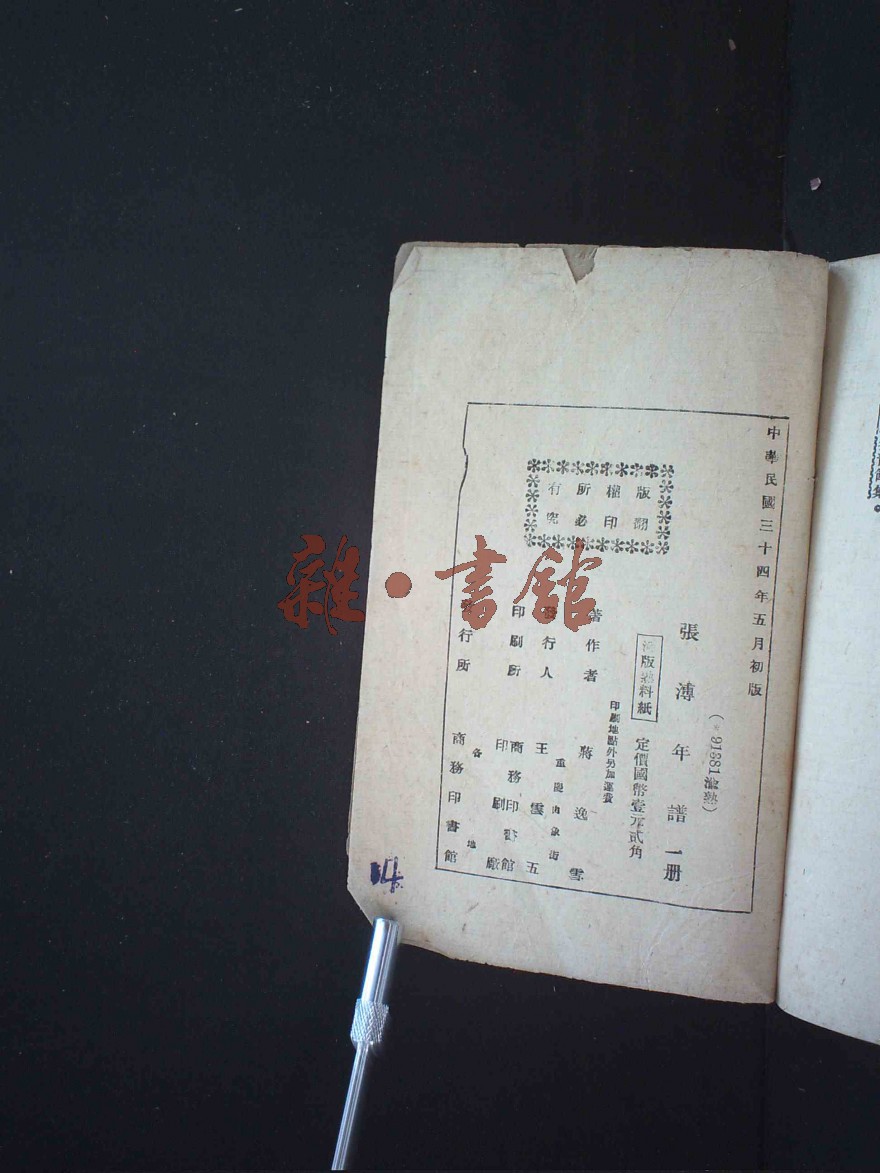 中華民國三十四年五月初版
(*91381渝熟)
張溥年譜一册
渝版熟料紙
定價國幣壹元貳角
印刷地點外另加運費
著作者 蔣逸雪
重慶白象街
發行人 王雲五
印刷所 商務印書館
印刷廠
發行所 各地
商務印書館
版權所有
翻印必究
雜·書館
14